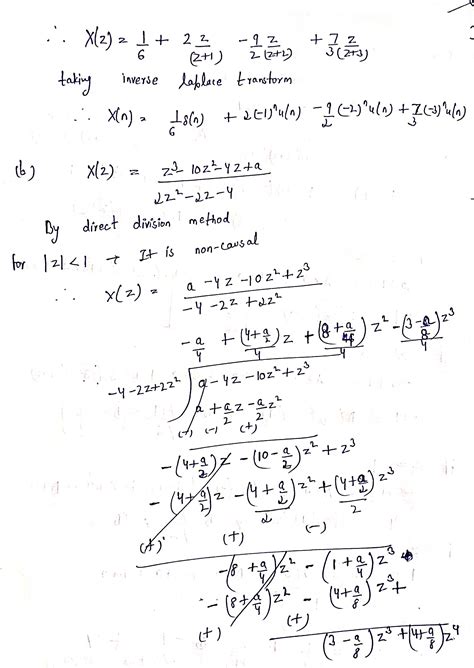 ∴ X(z) = 1/6 + 2 z/(z+1) - 9/2 z/(z+2) + 7/3 z/(z+3)
taking inverse laplace transtorm
∴ X(n) = 1/6 δ(n) + 2(-1)^n u(n) - 9/2 (-2)^n u(n) + 7/3 (-3)^n u(n)
(b) X(z) = (z^3 - 10z^2 - 4z + a)/(2z^2 - 2z - 4)
By direct division method
for |z| < 1 → It is non-causal
∴ X(z) = (a - 4z - 10z^2 + z^3)/(-4 - 2z + 2z^2)
-a/4 + (4+a/2)/4 z + (8+a/4)/4 z^2 - (3-a/8)/4 z^3
-4-2z+2z^2 ) a - 4z - 10z^2 + z^3
a + a/2 z - a/2 z^2
(-) (-) (+)
-(4+a/2)z - (10-a/2)z^2 + z^3
-(4+a/2)z - (4+a/2)/2 z^2 + (4+a/2)/2 z^3
(+) (+) (-)
-(8+a/4)z^2 - (1+a/4)z^3
-(8+a/4)z^2 - (4+a/8)z^3 +
(+) (+)
(3-a/8)z^3 + (4+a/8)z^4